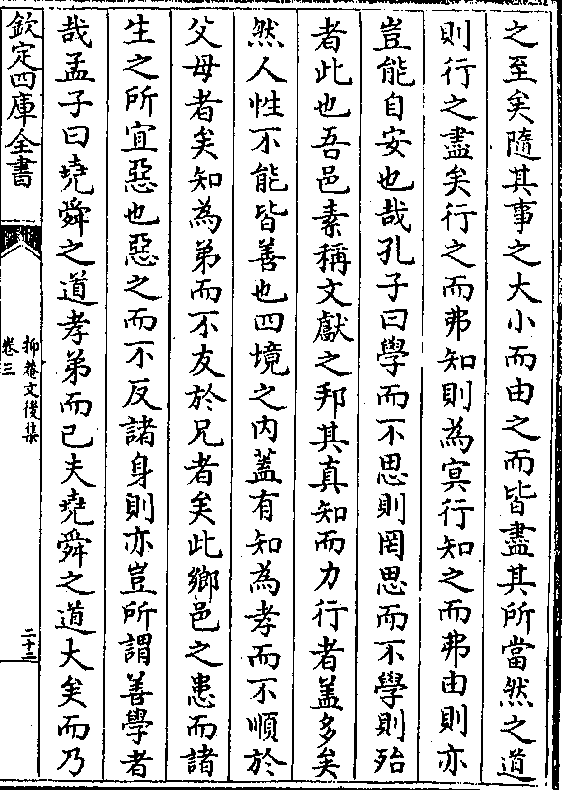 之至矣隨其事之大小而由之而皆盡其所當然之道
則行之盡矣行之而弗知則為㝠行知之而弗由則亦
豈能自安也哉孔子曰學而不思則罔思而不學則殆
者此也吾邑素稱文獻之邦其真知而力行者蓋多矣
然人性不能皆善也四境之内蓋有知為孝而不順於
父母者矣知為弟而不友於兄者矣此鄉邑之患而諸
生之所宜惡也惡之而不反諸身則亦豈所謂善學者
哉孟子曰堯舜之道孝弟而已夫堯舜之道大矣而乃
欽定四庫全書
抑菴文後集
卷三
二十三